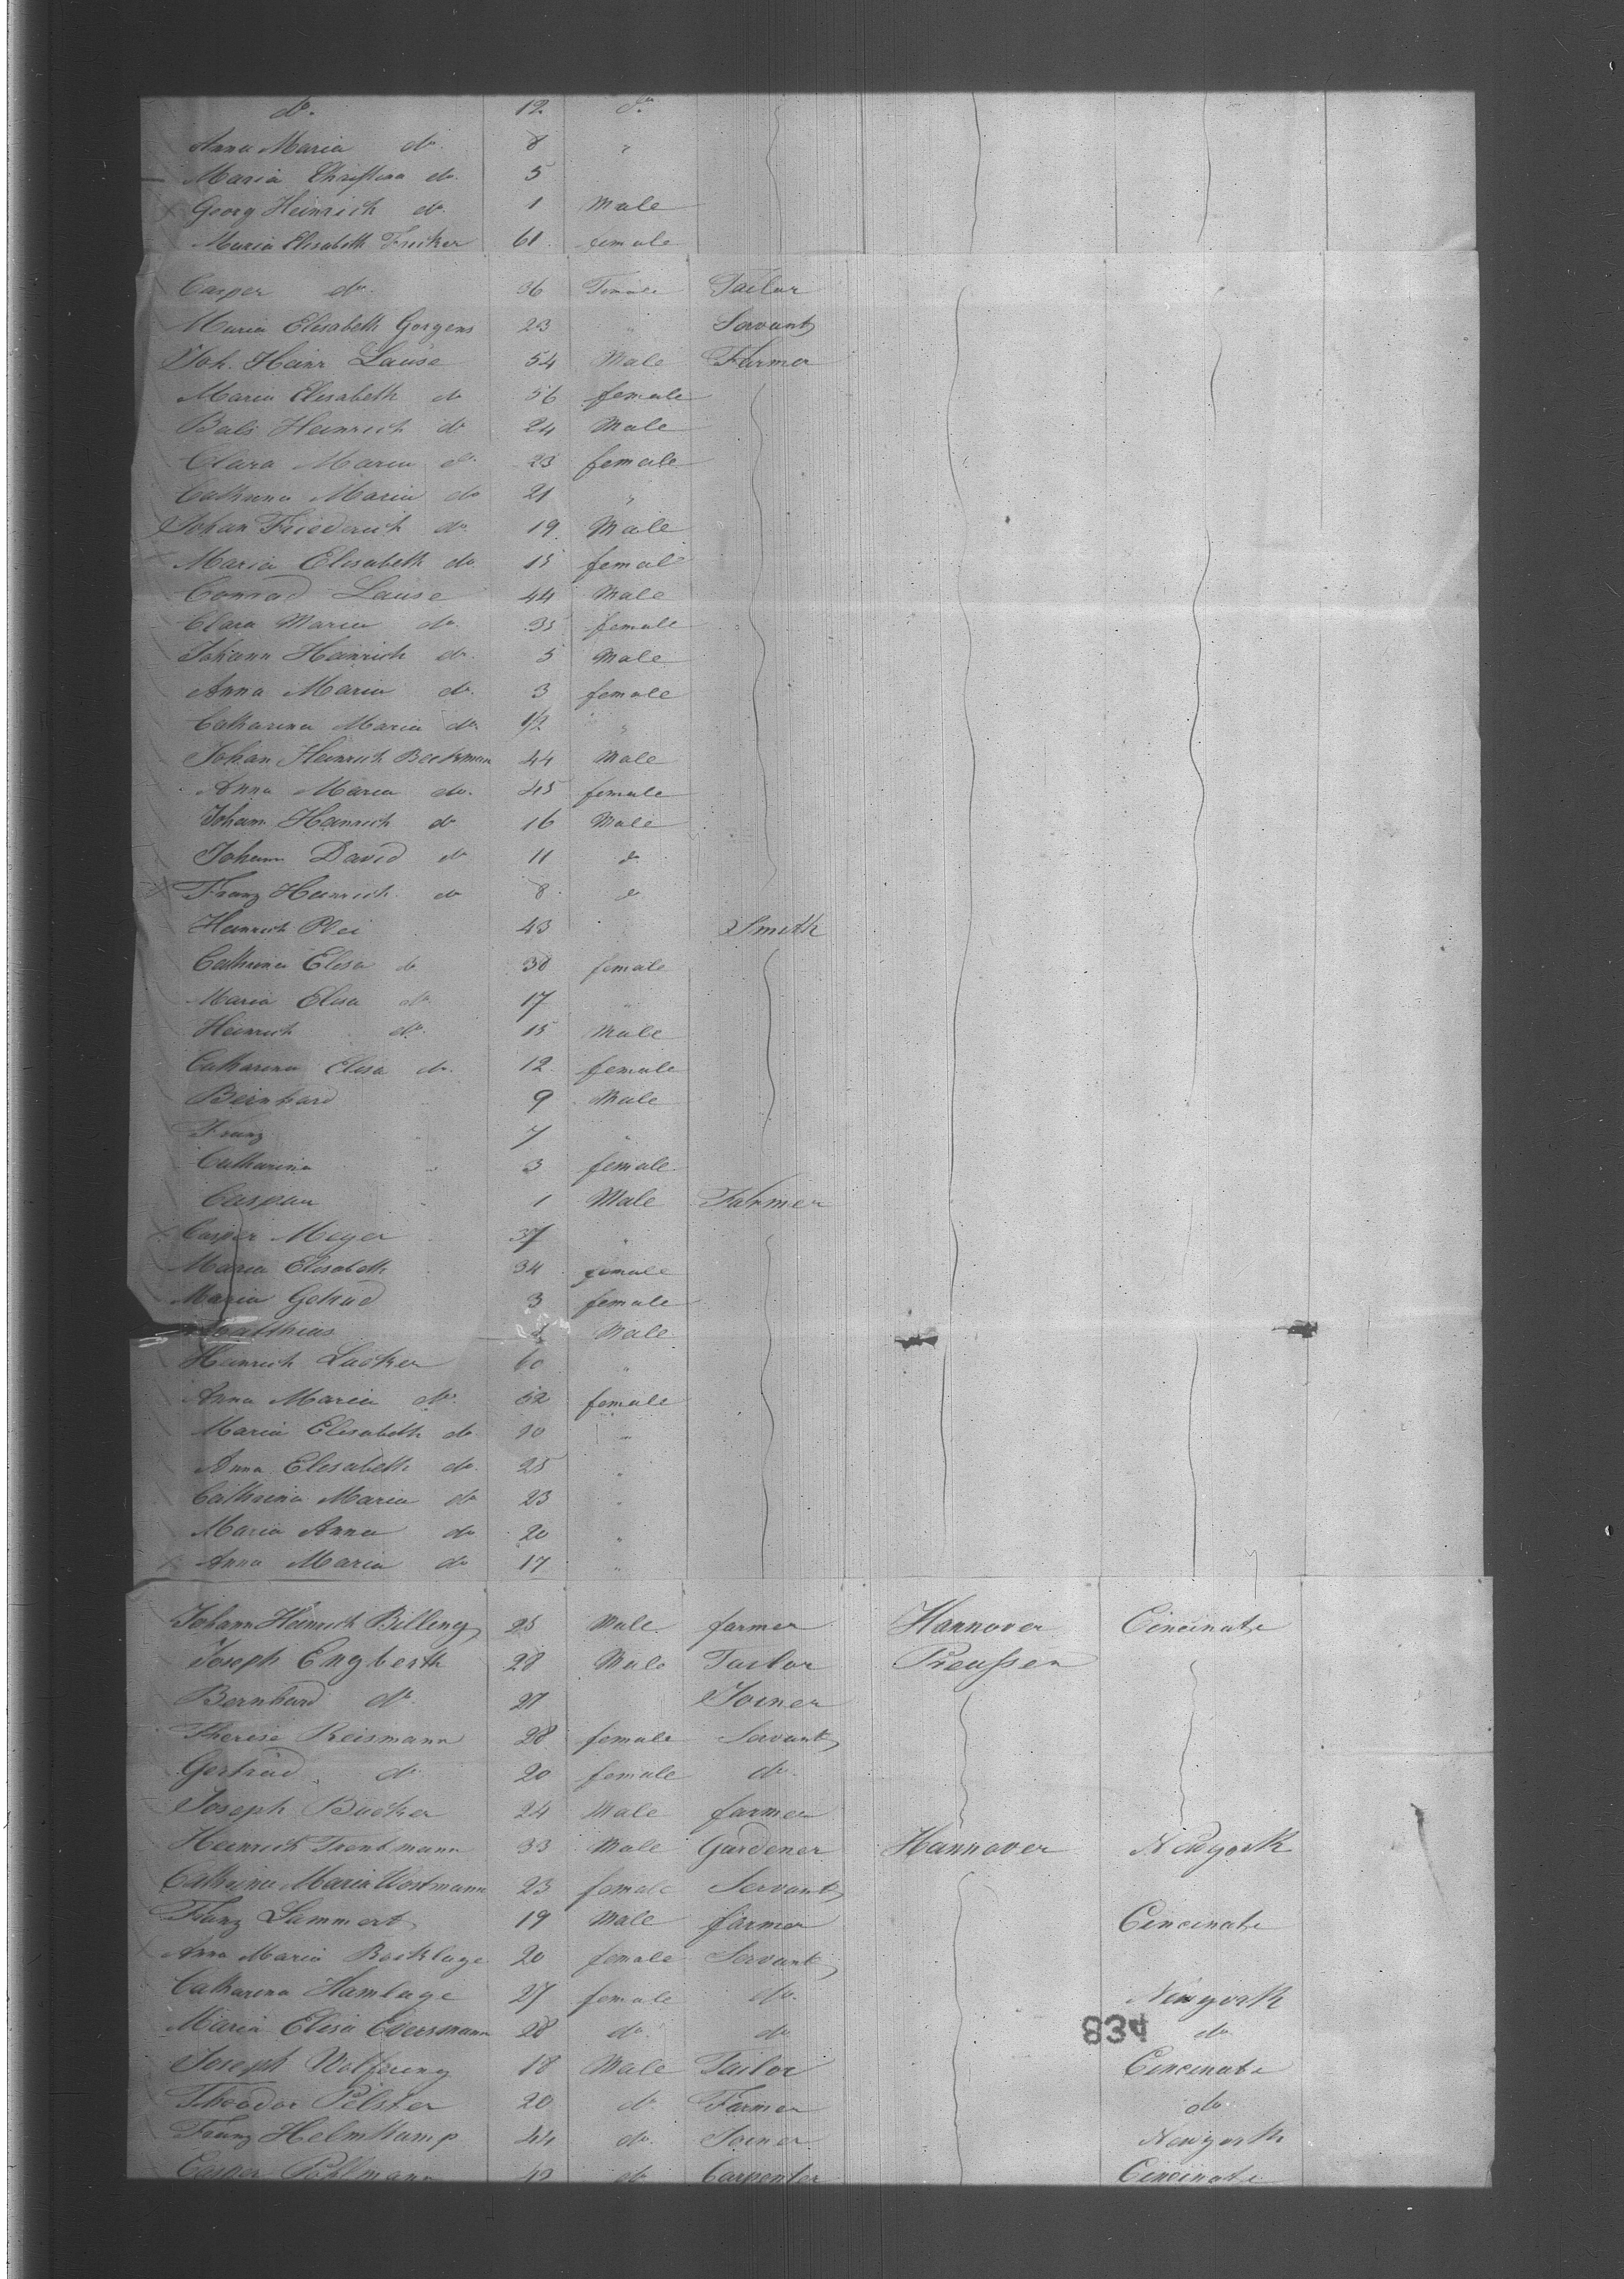 do. 12 do.
Anna Maria do. 8 "
Maria Christina do. 5
Georg Heinrich do. 1 Male
Maria Elisabeth 61 female
Casper do. 36 Female Tailor
Maria Elisabeth Gorgens 23 " Servant
Joh. Heinr Lause 54 Male Farmer
Maria Elisabeth do 56 female
Heinrich do 24 Male
Clara Maria do. 23 female
Cathrina Maria do 21 "
Johan Friederich do. 19 Male
Maria Elisabeth do. 15 femal
Conrad Lause 44 Male
Clara Maria do. 35 female
Johann Heinrich do. 5 Male
Anna Maria do. 3 female
Catharina Maria do 1/2 "
Johan Heinrich Beckman 44 Male
Anna Maria do. 45 female
Johann Heinrich do 16 Male
Johann David do 11 do
Franz Heinrich do 8 do
Heinrich Plei 43 Smith
Cathrina Elisa do 38 female
Maria Elisa do 17 "
Heinrich do. 15 Male
Catharina Elisa do. 12 female
Bernhard 9 Male
Franz 7 "
Catharina 3 female
Caspar 1 Male Farmer
Casper Meyer 37 "
Maria Elisabeth 34 female
Maria 3 female
Matthias Male
Heinrich Lucker 60 "
Anna Maria do. 52 female
Maria Elisabeth do "
Anna Elisabeth do. 25 "
Cathrina Maria do 23 "
Maria Anna do 20 "
Anna Maria do 17 "
Johann Heinrich Billeng 25 Male farmer Hannover Cincinate
Joseph Engberth 28 Male Tailor Preussen
Bernhard do. 27 Joiner
Therese Reismann 28 female Servant
Gertrud do. 20 female do.
Joseph Bucker 24 Male farmer
Heinrich Trentmann 33 Male Gardener Hannover Newyork
Cathrina Maria Wostmann 23 female Servant
Franz Lammert 19 Male farmer Cincinate
Anna Maria Bocklage 20 female Servant
Catharina Hamlage 27 female do. Newyork
Maria Elisa Eversmann 28 do. do do
834
Joseph Wolfering 18 Male Tailor Cincinate
Theodor Pelster 20 do Farmer do
Franz Helmkamp 44 do. Joiner Newyork
Casper Pohlmann do Carpenter Cincinate